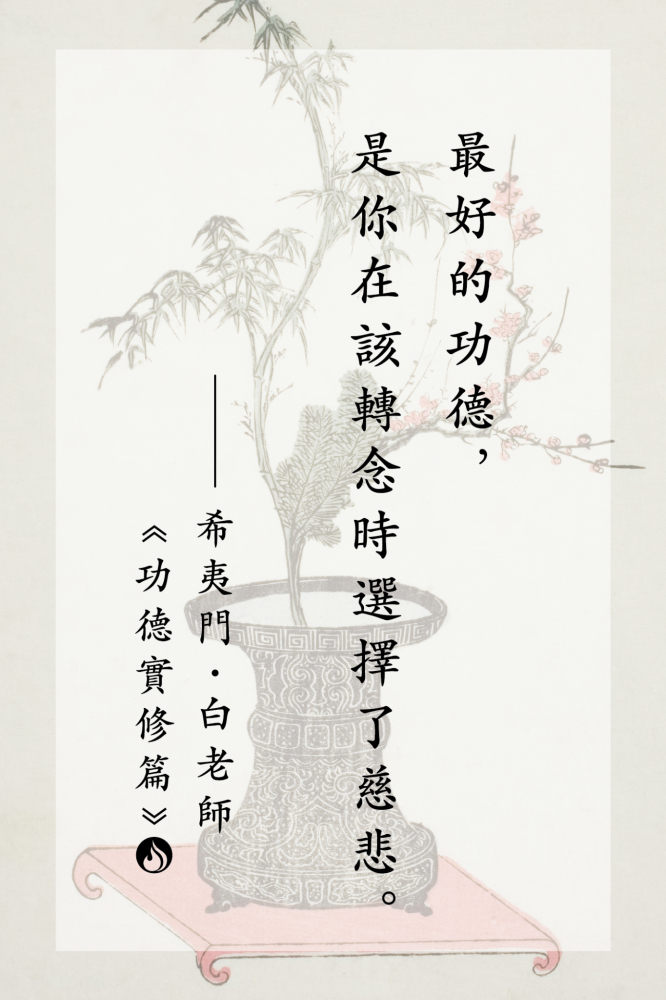 最好的功德，
是你在該轉念時選擇了慈悲。
——希夷門·白老師
《功德實修篇》